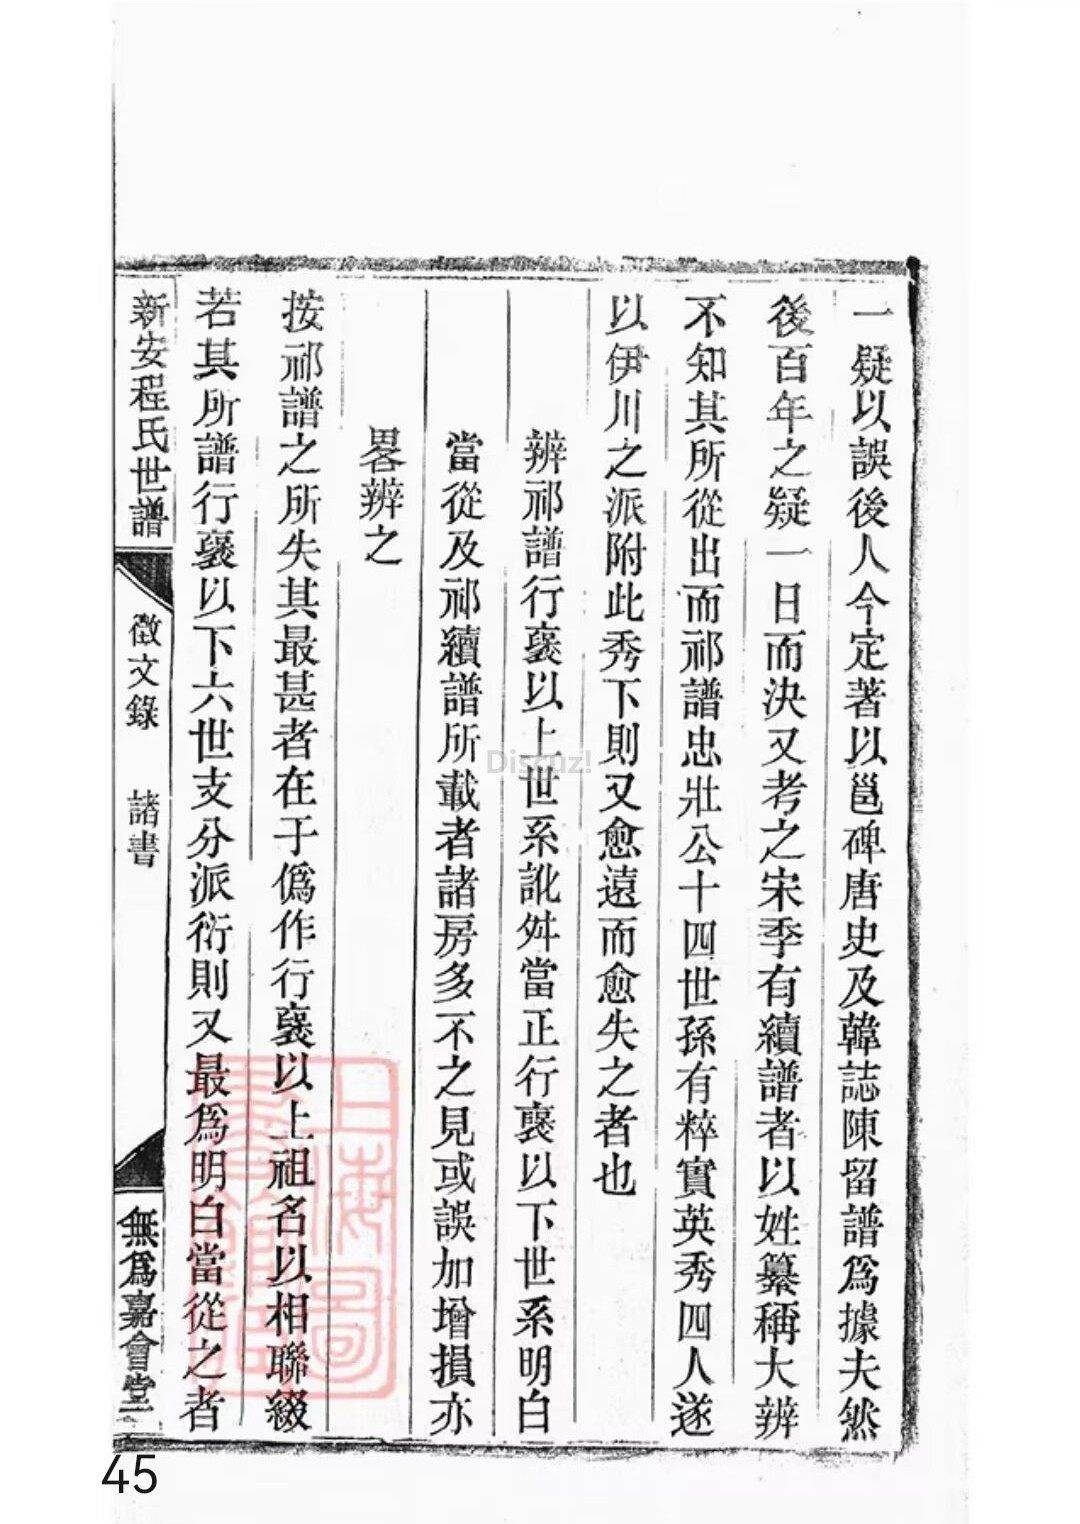 一疑以誤後人今定著以邕碑唐史及韓誌陳留譜爲據夫然
後百年之疑一日而決又考之宋季有續譜者以姓纂稱大辨
不知其所從出而祁譜忠壯公十四世孫有粹實英秀四人遂
以伊川之派附此秀下則又愈遠而愈失之者也
辨祁譜行褒以上世系訛舛當正行褒以下世系明白
當從及祁續譜所載者諸房多不之見或誤加增損亦
畧辨之
按祁譜之所失其最甚者在于僞作行褒以上祖名以相聯綴
若其所譜行褒以下六世支分派衍則又最爲明白當從之者
新安程氏世譜
徵文錄 諸書
無爲嘉會堂
上海圖書館藏
Discuz!
45